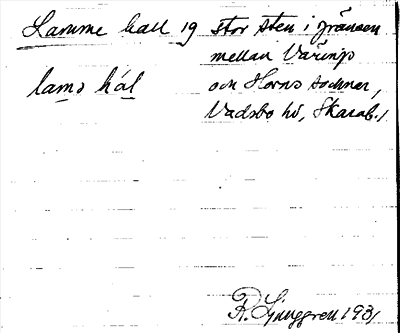 Lamme hall 19 stor sten i gränsen
mellan Värings
lams hál och Horns socknar,
Vadsbo hd, Skarab.l
R. Ljunggren 1931